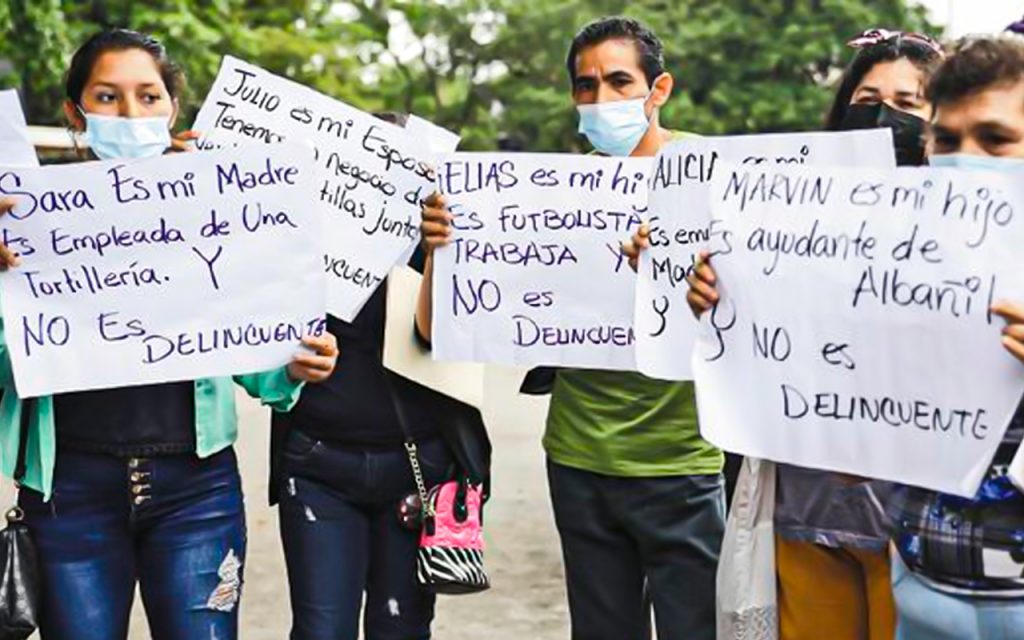 Sara Es mi Madre
Es Empleada de Una
Tortillería. Y
NO Es
DELINCUENTE
JULIO es mi Esposo
Tenemos
negocio de
tillas junto
NCUENT
¡ELIAS es mi hi
ES FUTBOLISTA
TRABAJA Y
NO es
DELINCUEN
ALICIA es mi
Es em
Mad
y
MARVIN es mi hijo
Es ayudante de
Albañil
y NO es
DELINCUENTE